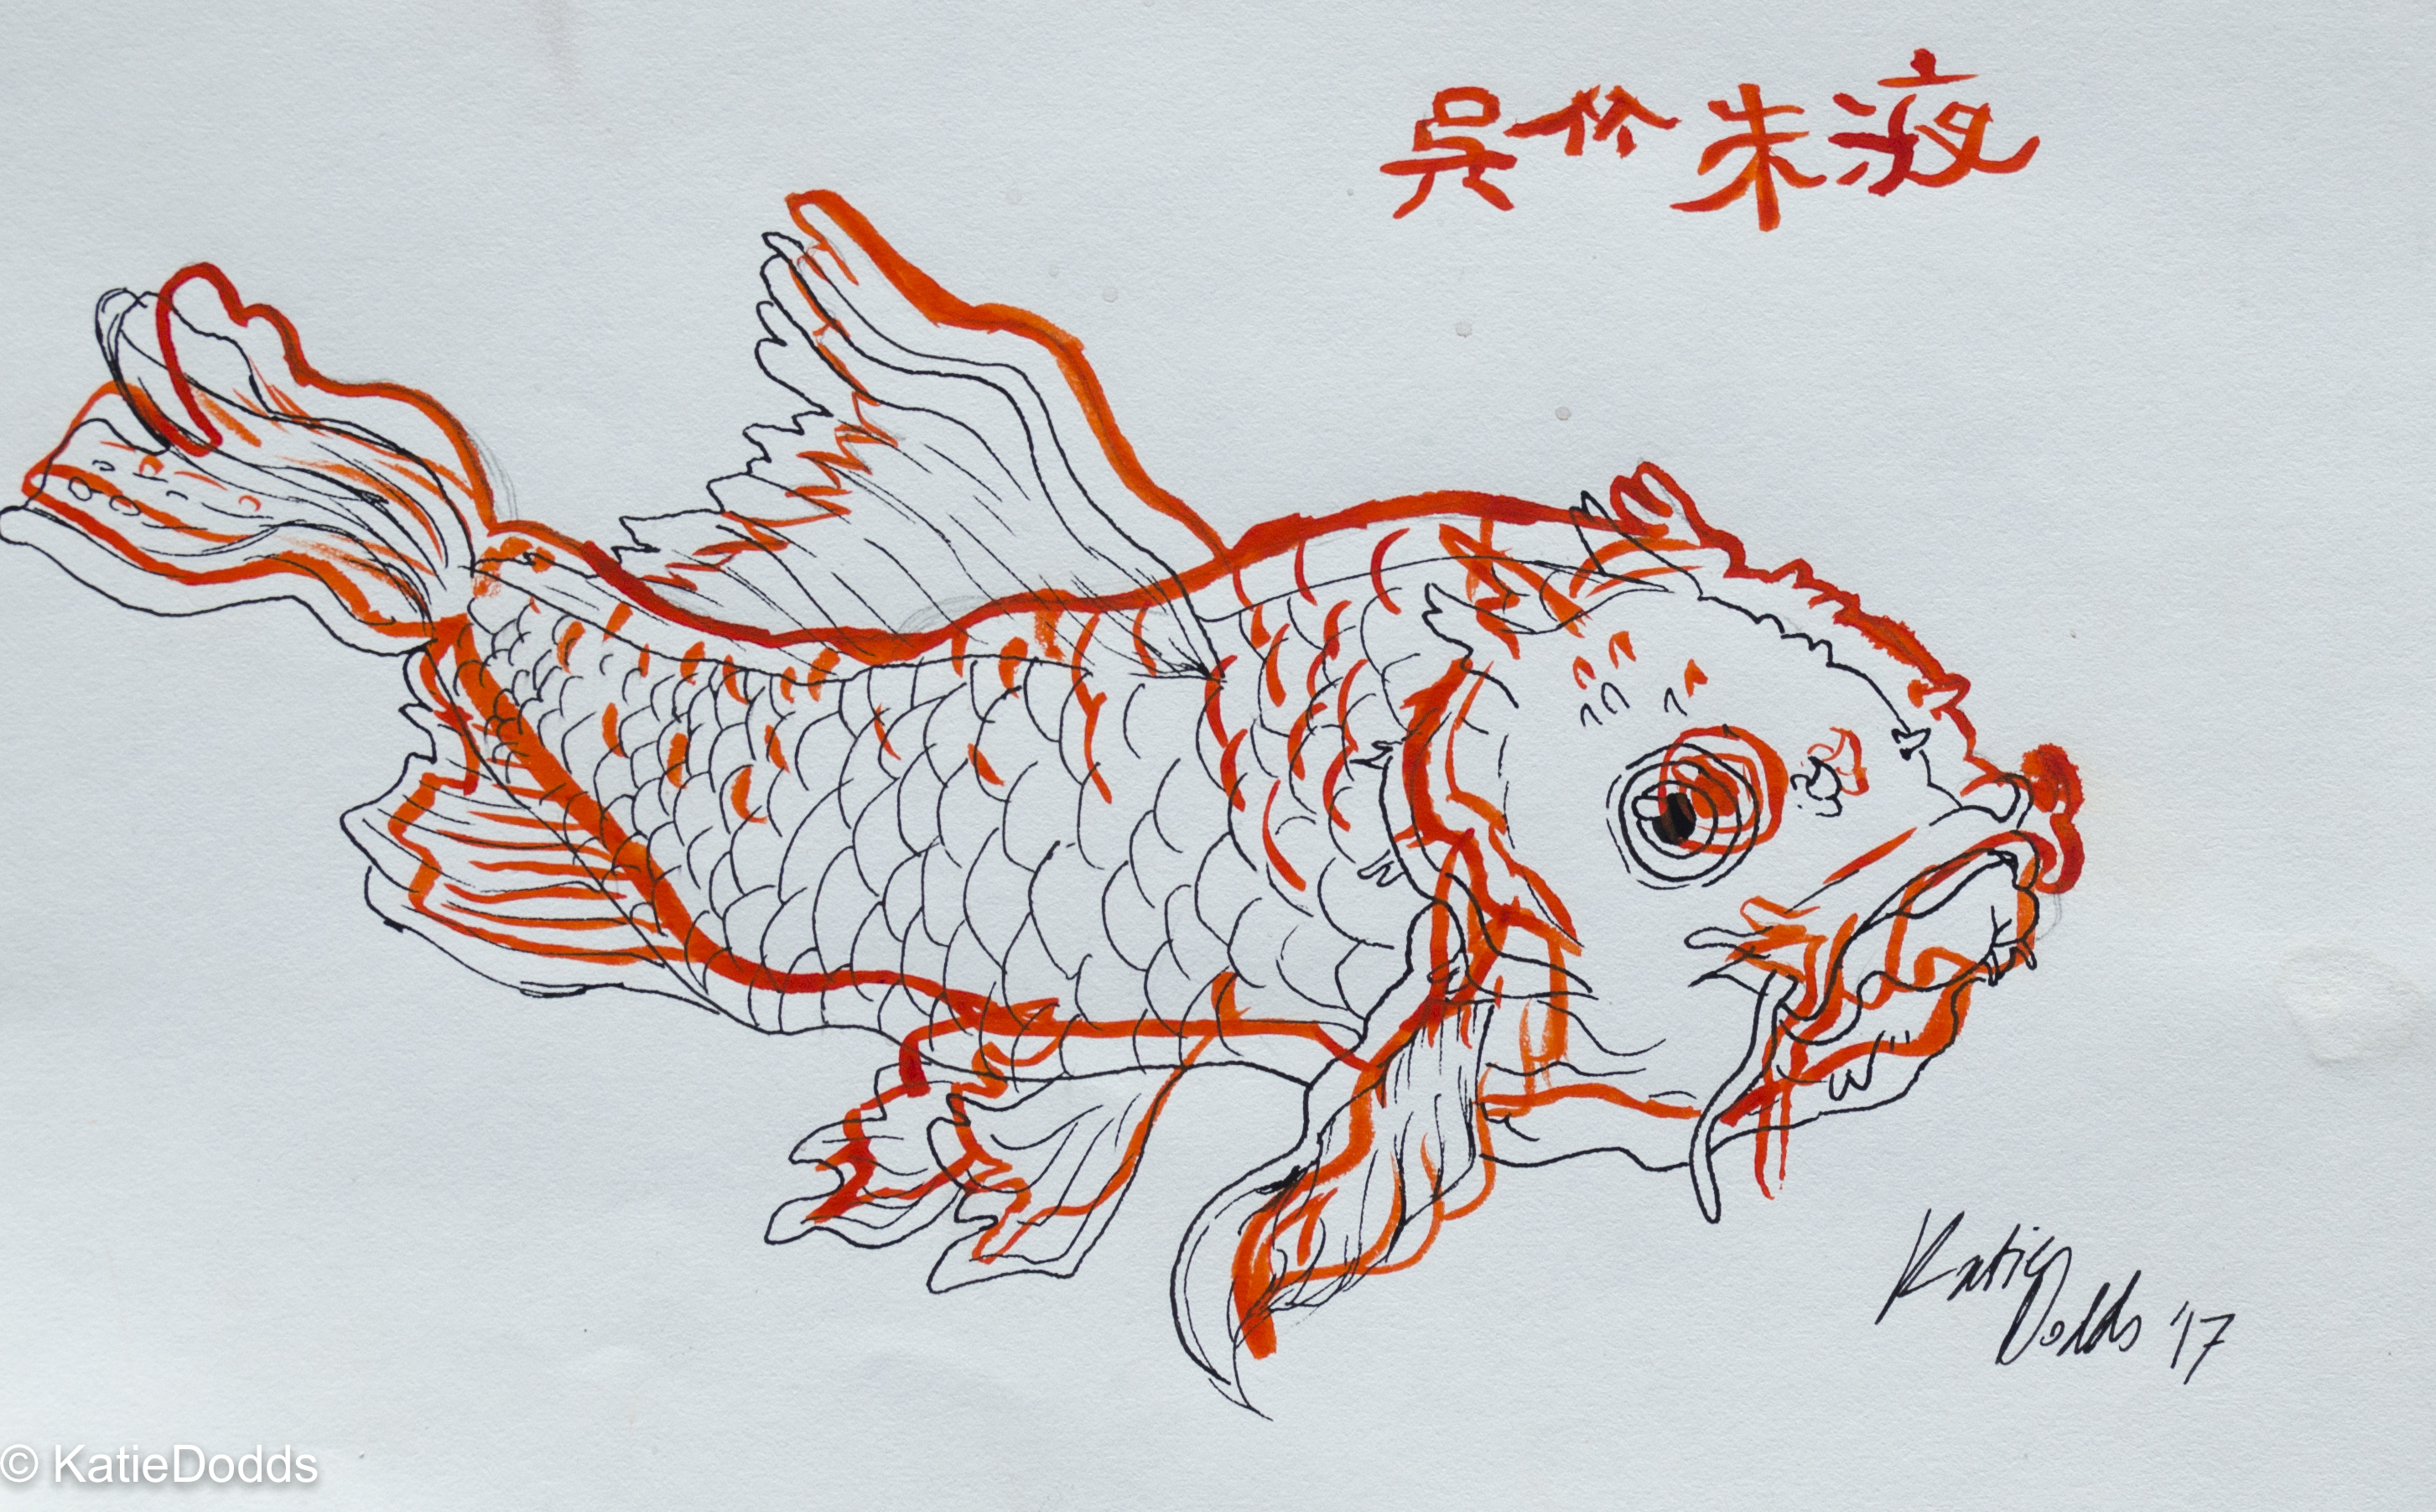 吳竹朱液
Katie
Dodds '17
© KatieDodds